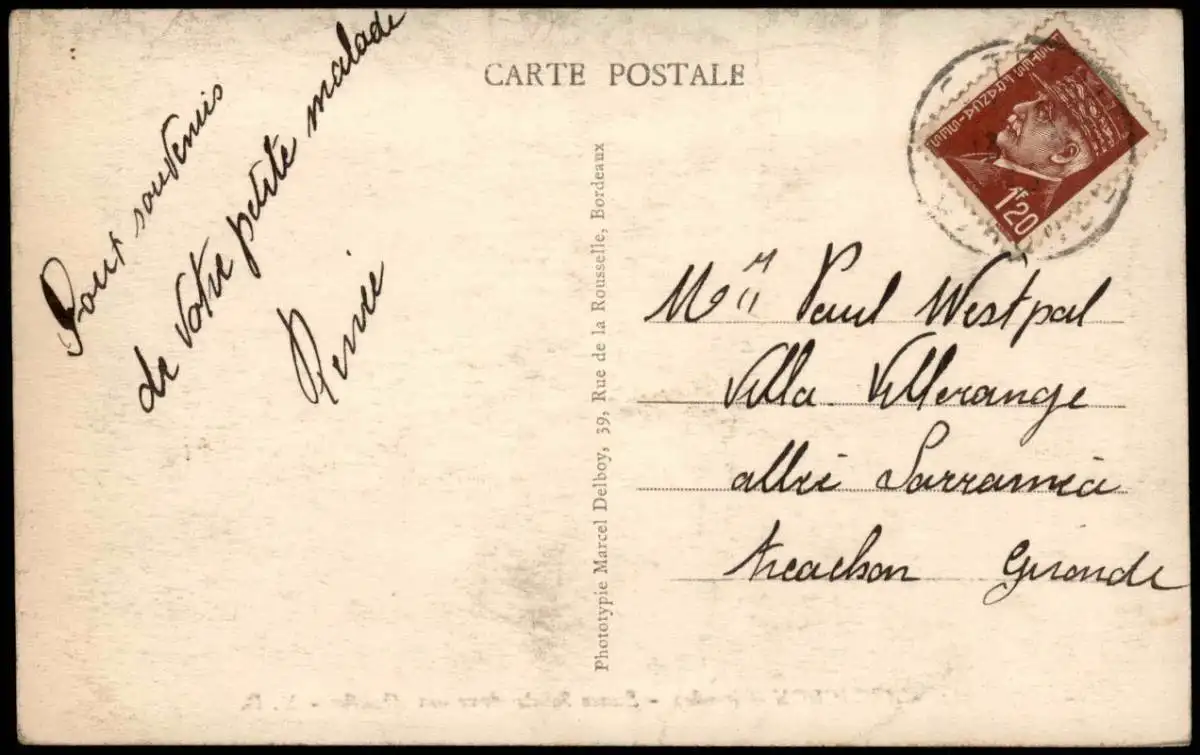 CARTE POSTALE
Pour souvenirs
de votre petite malade
Renée
Phototypie Marcel Delboy, 39, Rue de la Rousselle, Bordeaux
POSTES FRANÇAISES
1F20
Paul Westpal
Villa Villerange
allée Sarraméa
Arcachon Gironde